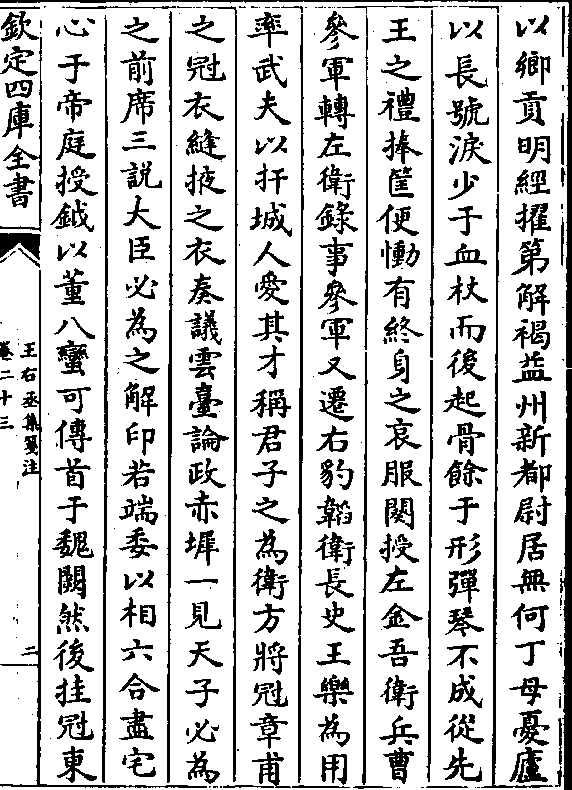 以鄉貢明經擢第解褐益州新都尉居無何丁母憂廬
以長號淚少于血杖而後起骨餘于形彈琴不成從先
王之禮捧筐便慟有終身之哀服闋授左金吾衛兵曹
參軍轉左衛錄事參軍又遷右豹韜衛長史王樂為用
率武夫以扞城人愛其才稱君子之為衛方將冠章甫
之冠衣縫掖之衣奏議雲臺論政赤墀一見天子必為
之前席三說大臣必為之解印若端委以相六合盡宅
心于帝庭授鉞以董八蠻可傳首于魏闕然後挂冠東
欽定四庫全書
王右丞集箋注
卷二十三
二